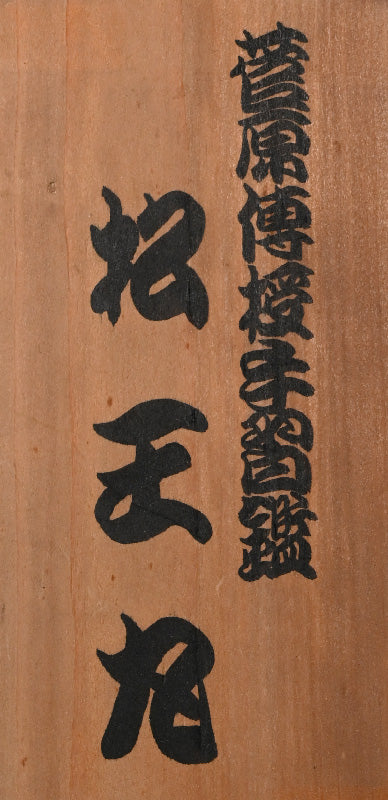 菅原傳授手習鑑
松王丸